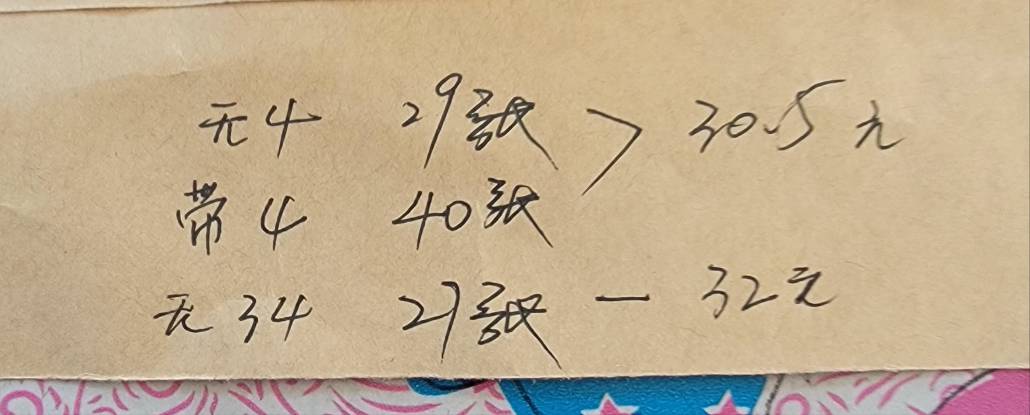 无4 29張 > 30.5元
带4 40張
无34 27張 — 32元